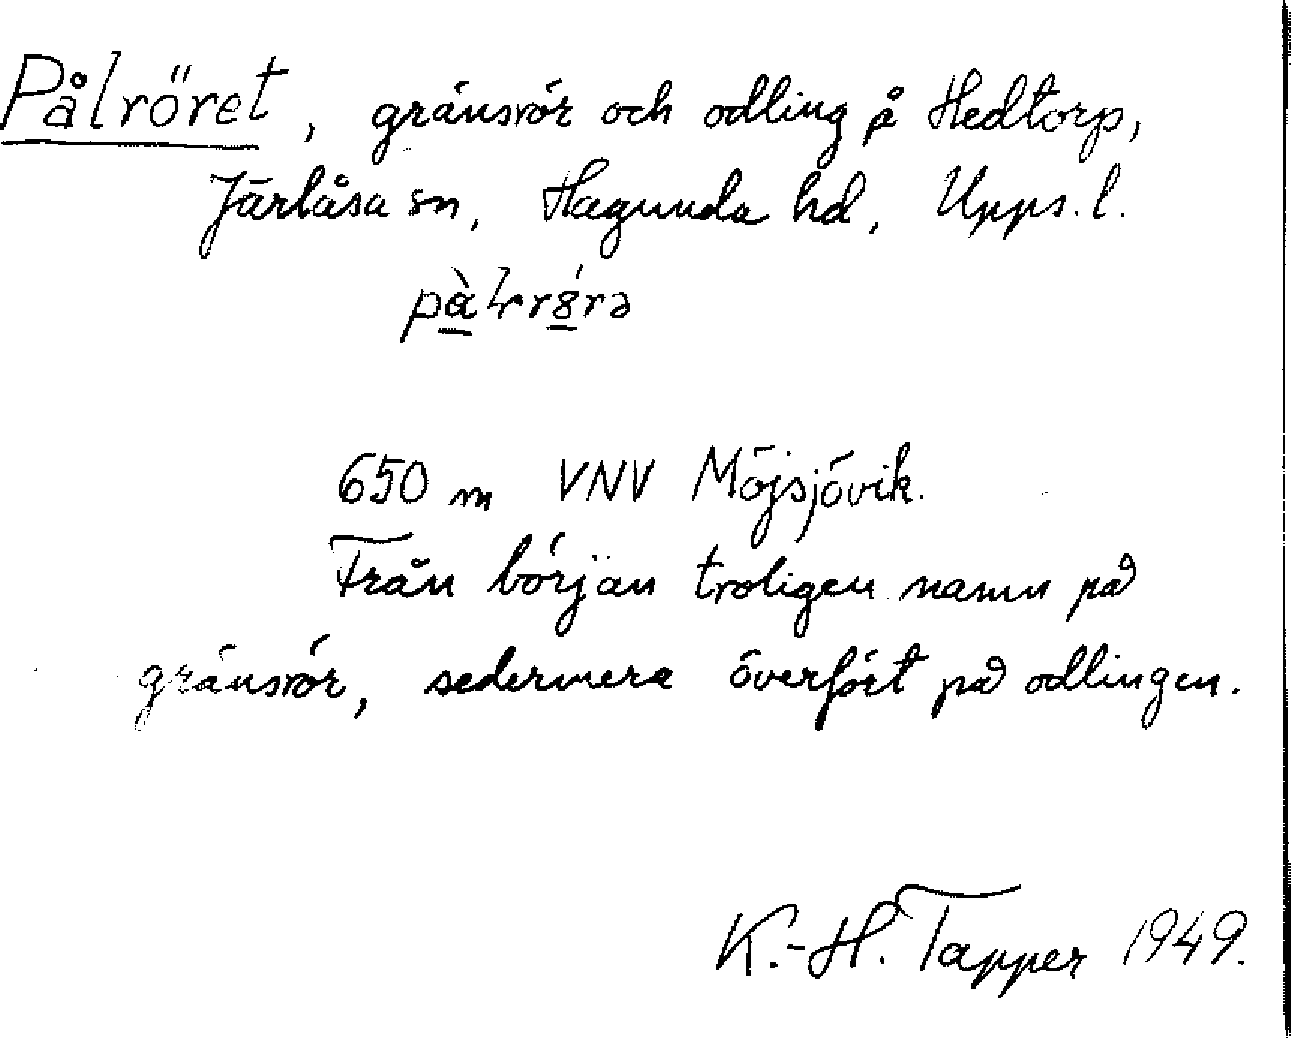 Pålröret, gränsrör och odling å Hedtorp,
Järlåsa sn, Hagunda hd, Upps. l.
650 m VNV Möjsjövik.
Från början troligen namn på
gränsrör, sedermera överfört på odlingen.
K.-H. Tapper 1949.